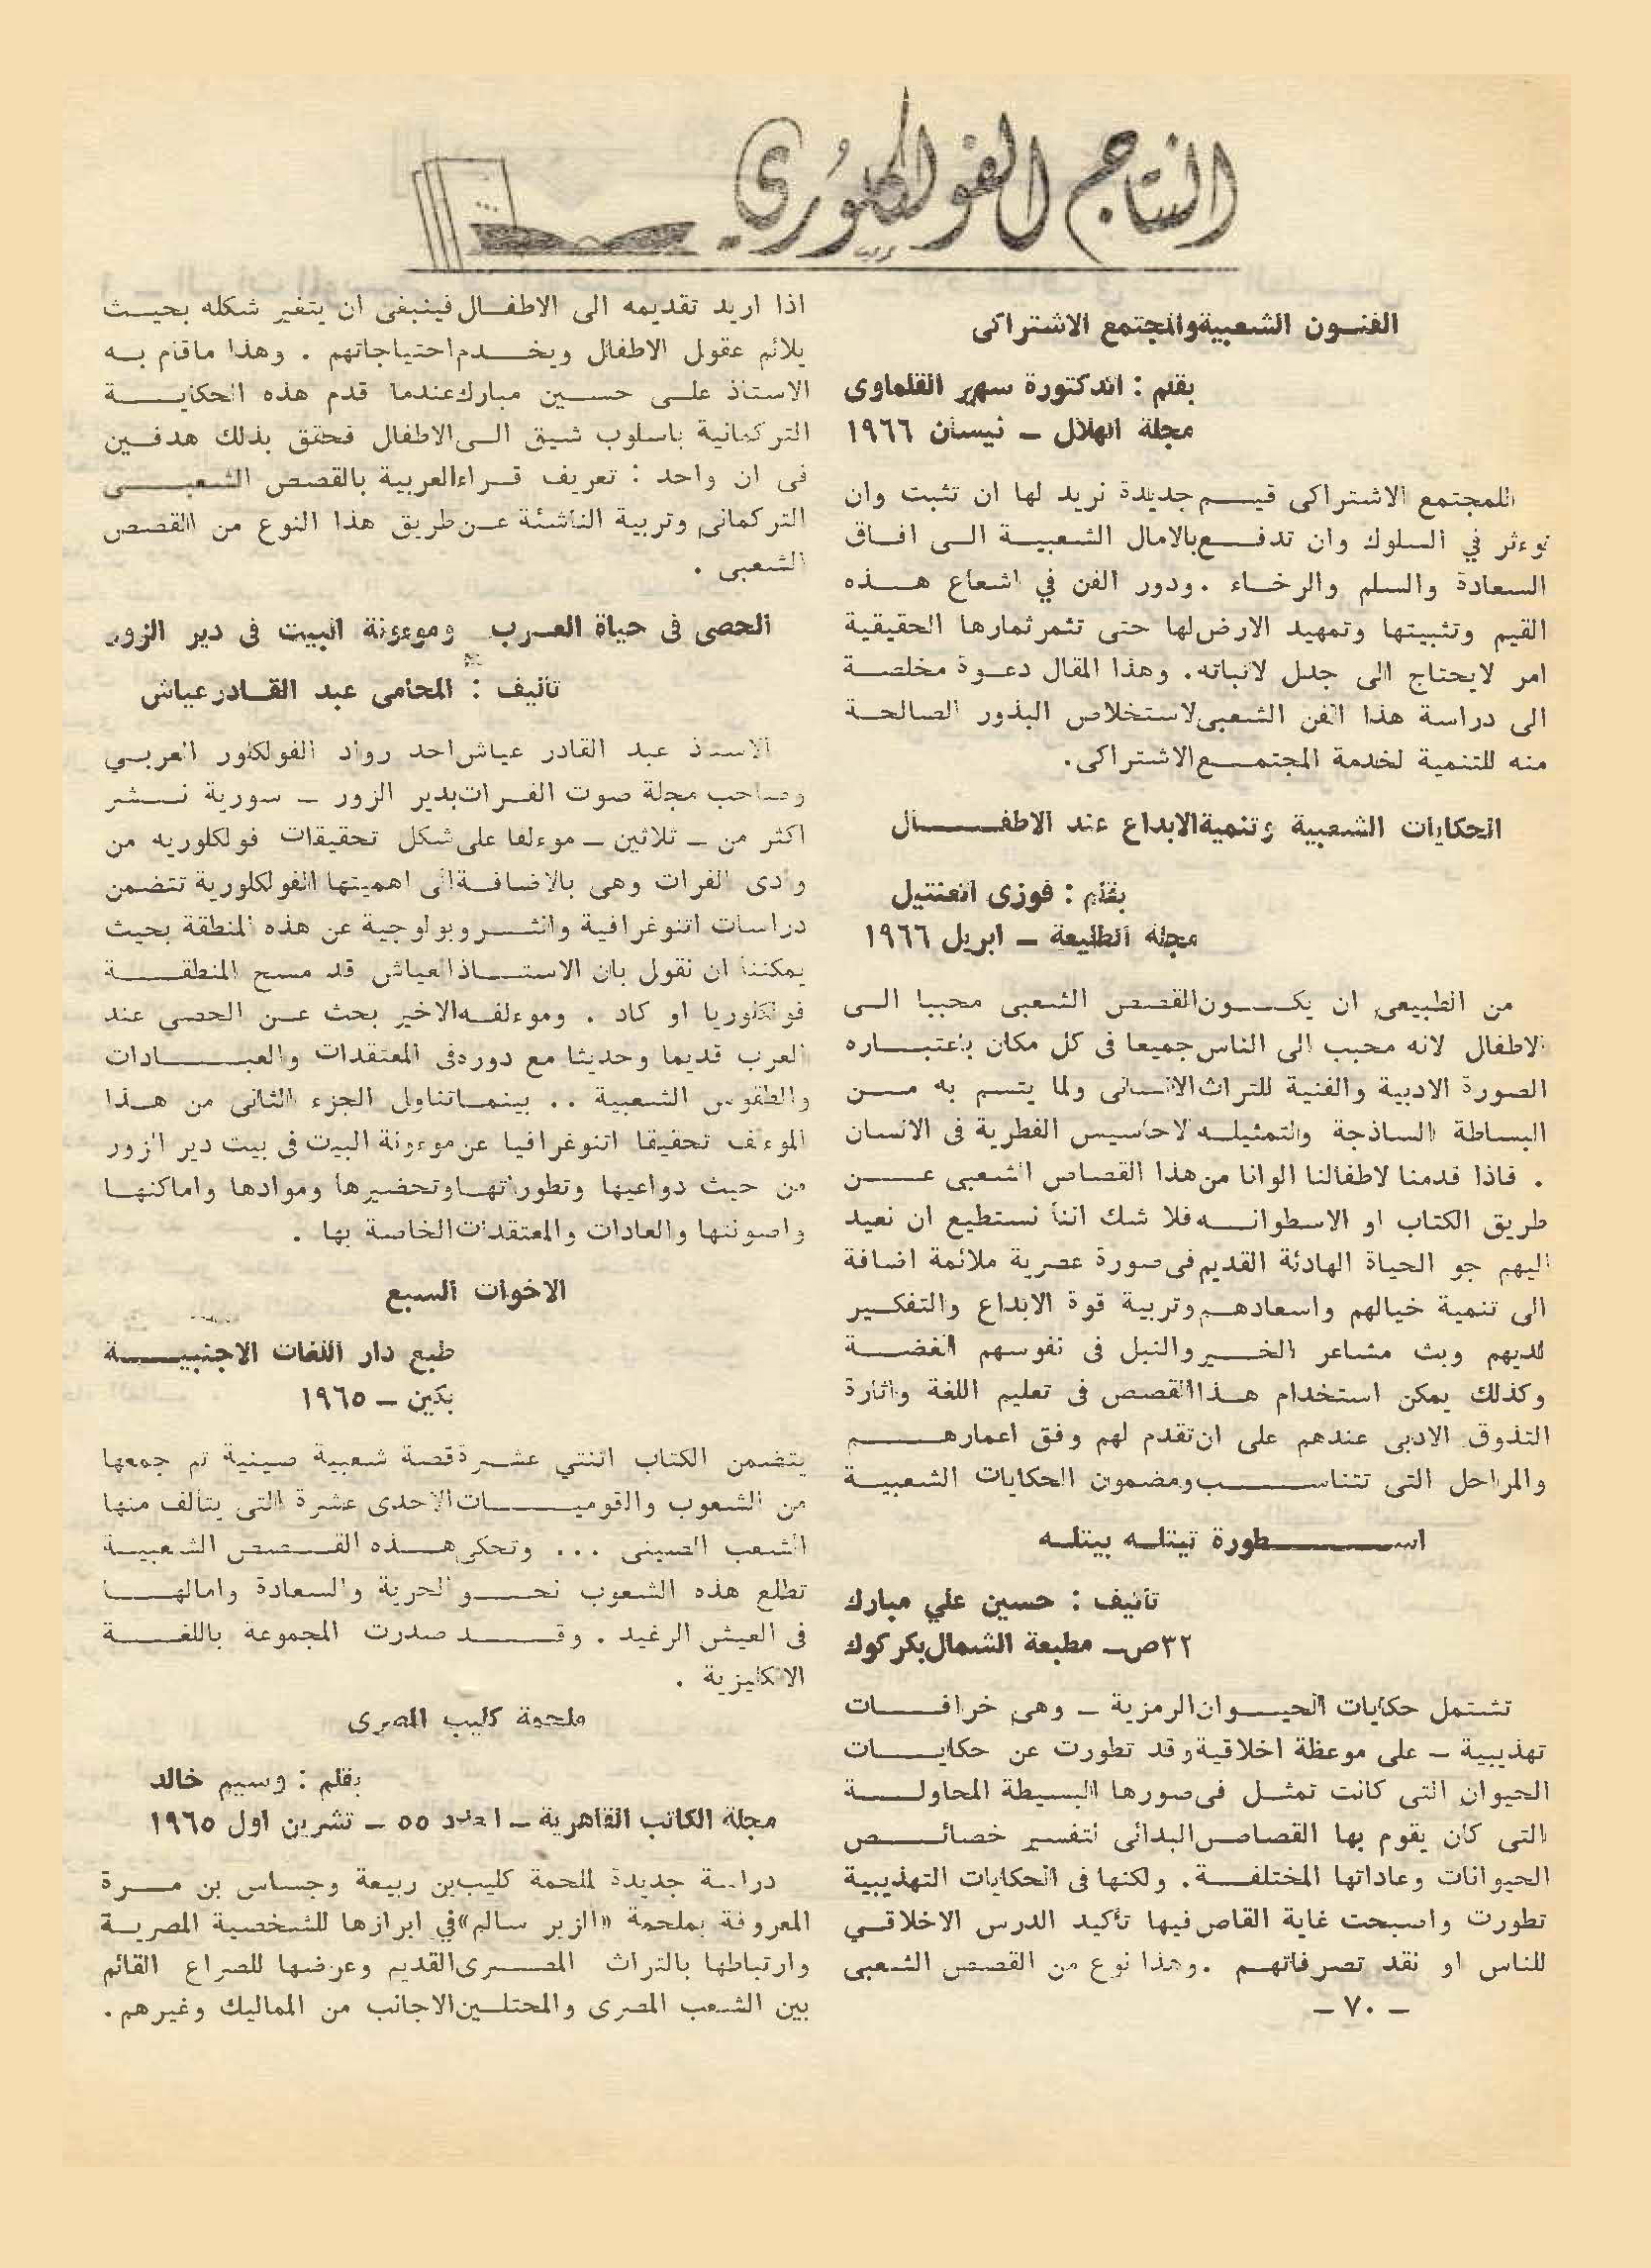 النتاج الفولكلوري
الفنون الشعبية والمجتمع الاشتراكى
بقلم : الدكتورة سهير القلماوى
مجلة الهلال - نيسان ١٩٦٦
للمجتمع الاشتراكى قيم جديدة نريد لها ان تثبت وان
توءثر في السلوك وان تدفع بالامال الشعبية الى افاق
السعادة والسلم والرخاء . ودور الفن في اشعاع هذه
القيم وتثبيتها وتمهيد الارض لها حتى تثمر ثمارها الحقيقية
امر لايحتاج الى جدل لاثباته . وهذا المقال دعوة مخلصة
الى دراسة هذا الفن الشعبى لاستخلاص البذور الصالحة
منه للتنمية لخدمة المجتمع الاشتراكى .
الحكايات الشعبية وتنمية الابداع عند الاطفال
بقلم : فوزى العنتيل
مجلة الطليعة - ابريل ١٩٦٦
من الطبيعى ان يكون القصص الشعبى محببا الى
الاطفال لانه محبب الى الناس جميعا فى كل مكان باعتباره
الصورة الادبية والفنية للتراث الانسانى ولما يتسم به من
البساطة الساذجة والتمثيله لاحاسيس الفطرية فى الانسان
. فاذا قدمنا لاطفالنا الوانا من هذا القصاص الشعبى عن
طريق الكتاب او الاسطوانه فلا شك اننا نستطيع ان نعيد
اليهم جو الحياة الهادئة القديم فى صورة عصرية ملائمة اضافة
الى تنمية خيالهم واسعادهم وتربية قوة الابداع والتفكير
لديهم وبث مشاعر الخير والنبل فى نفوسهم الغضة
وكذلك يمكن استخدام هذا القصص فى تعليم اللغة واثارة
التذوق الادبى عندهم على ان تقدم لهم وفق اعمارهم
والمراحل التى تتناسب ومضمون الحكايات الشعبية
اسطورة تيتله بيتله
تأليف : حسين علي مبارك
٣٢ص - مطبعة الشمال بكركوك
تشتمل حكايات الحيوان الرمزية - وهى خرافات
تهذيبية - على موعظة اخلاقية وقد تطورت عن حكايات
الحيوان التى كانت تمثل فى صورها البسيطة المحاولة
التى كان يقوم بها القصاص البدائى لتفسير خصائص
الحيوانات وعاداتها المختلفة . ولكنها فى الحكايات التهذيبية
تطورت واصبحت غاية القاص فيها تأكيد الدرس الاخلاقي
للناس او نقد تصرفاتهم . وهذا نوع من القصص الشعبى
- ٧٠ -
اذا اريد تقديمه الى الاطفال فينبغى ان يتغير شكله بحيث
يلائم عقول الاطفال ويخدم احتياجاتهم . وهذا ماقام به
الاستاذ على حسين مبارك عندما قدم هذه الحكاية
التركمانية باسلوب شيق الى الاطفال فحقق بذلك هدفين
فى ان واحد : تعريف قراء العربية بالقصص الشعبى
التركمانى وتربية الناشئة عن طريق هذا النوع من القصص
الشعبى .
الحصى فى حياة العرب وموءونة البيت فى دير الزور
تأليف : المحامى عبد القادر عياش
الاستذ عبد القادر عياش احد رواد الفولكلور العربي
وصاحب مجلة صوت الفرات بدير الزور - سورية نشر
اكثر من - ثلاثين - موءلفا على شكل تحقيقات فولكلوريه من
وادى الفرات وهى بالاضافة الى اهميتها الفولكلورية تتضمن
دراسات اثنوغرافية وانثروبولوجية عن هذه المنطقة بحيث
يمكننا ان نقول بان الاستاذ العياش قد مسح المنطقة
فولكلوريا او كاد . وموءلفه الاخير بحث عن الحصى عند
العرب قديما وحديثا مع دوره فى المعتقدات والعبادات
والطقوس الشعبية .. بينما تناول الجزء الثانى من هذا
الموءلف تحقيقا اثنوغرافيا عن موءونة البيت فى بيت دير الزور
من حيث دواعيها وتطوراتها وتحضيرها وموادها واماكنها
واصونتها والعادات والمعتقدات الخاصة بها .
الاخوات السبع
طبع دار اللغات الاجنبية
بكين - ١٩٦٥
يتضمن الكتاب اثنتي عشرة قصة شعبية صينية تم جمعها
من الشعوب والقوميات الاحدى عشرة التى يتالف منها
الشعب الصينى ... وتحكى هذه القصص الشعبية
تطلع هذه الشعوب نحو الحرية والسعادة وامالها
فى العيش الرغيد . وقد صدرت المجموعة باللغة
الانكليزية .
ملحمة كليب المصرى
بقلم : وسيم خالد
مجلة الكاتب القاهرية - العدد ٥٥ - تشرين اول ١٩٦٥
دراسة جديدة لملحمة كليب بن ربيعة وجساس بن مرة
المعروفة بملحمة «الزير سالم» في ابرازها للشخصية المصرية
وارتباطها بالتراث المصرى القديم وعرضها للصراع القائم
بين الشعب المصرى والمحتلين الاجانب من المماليك وغيرهم .